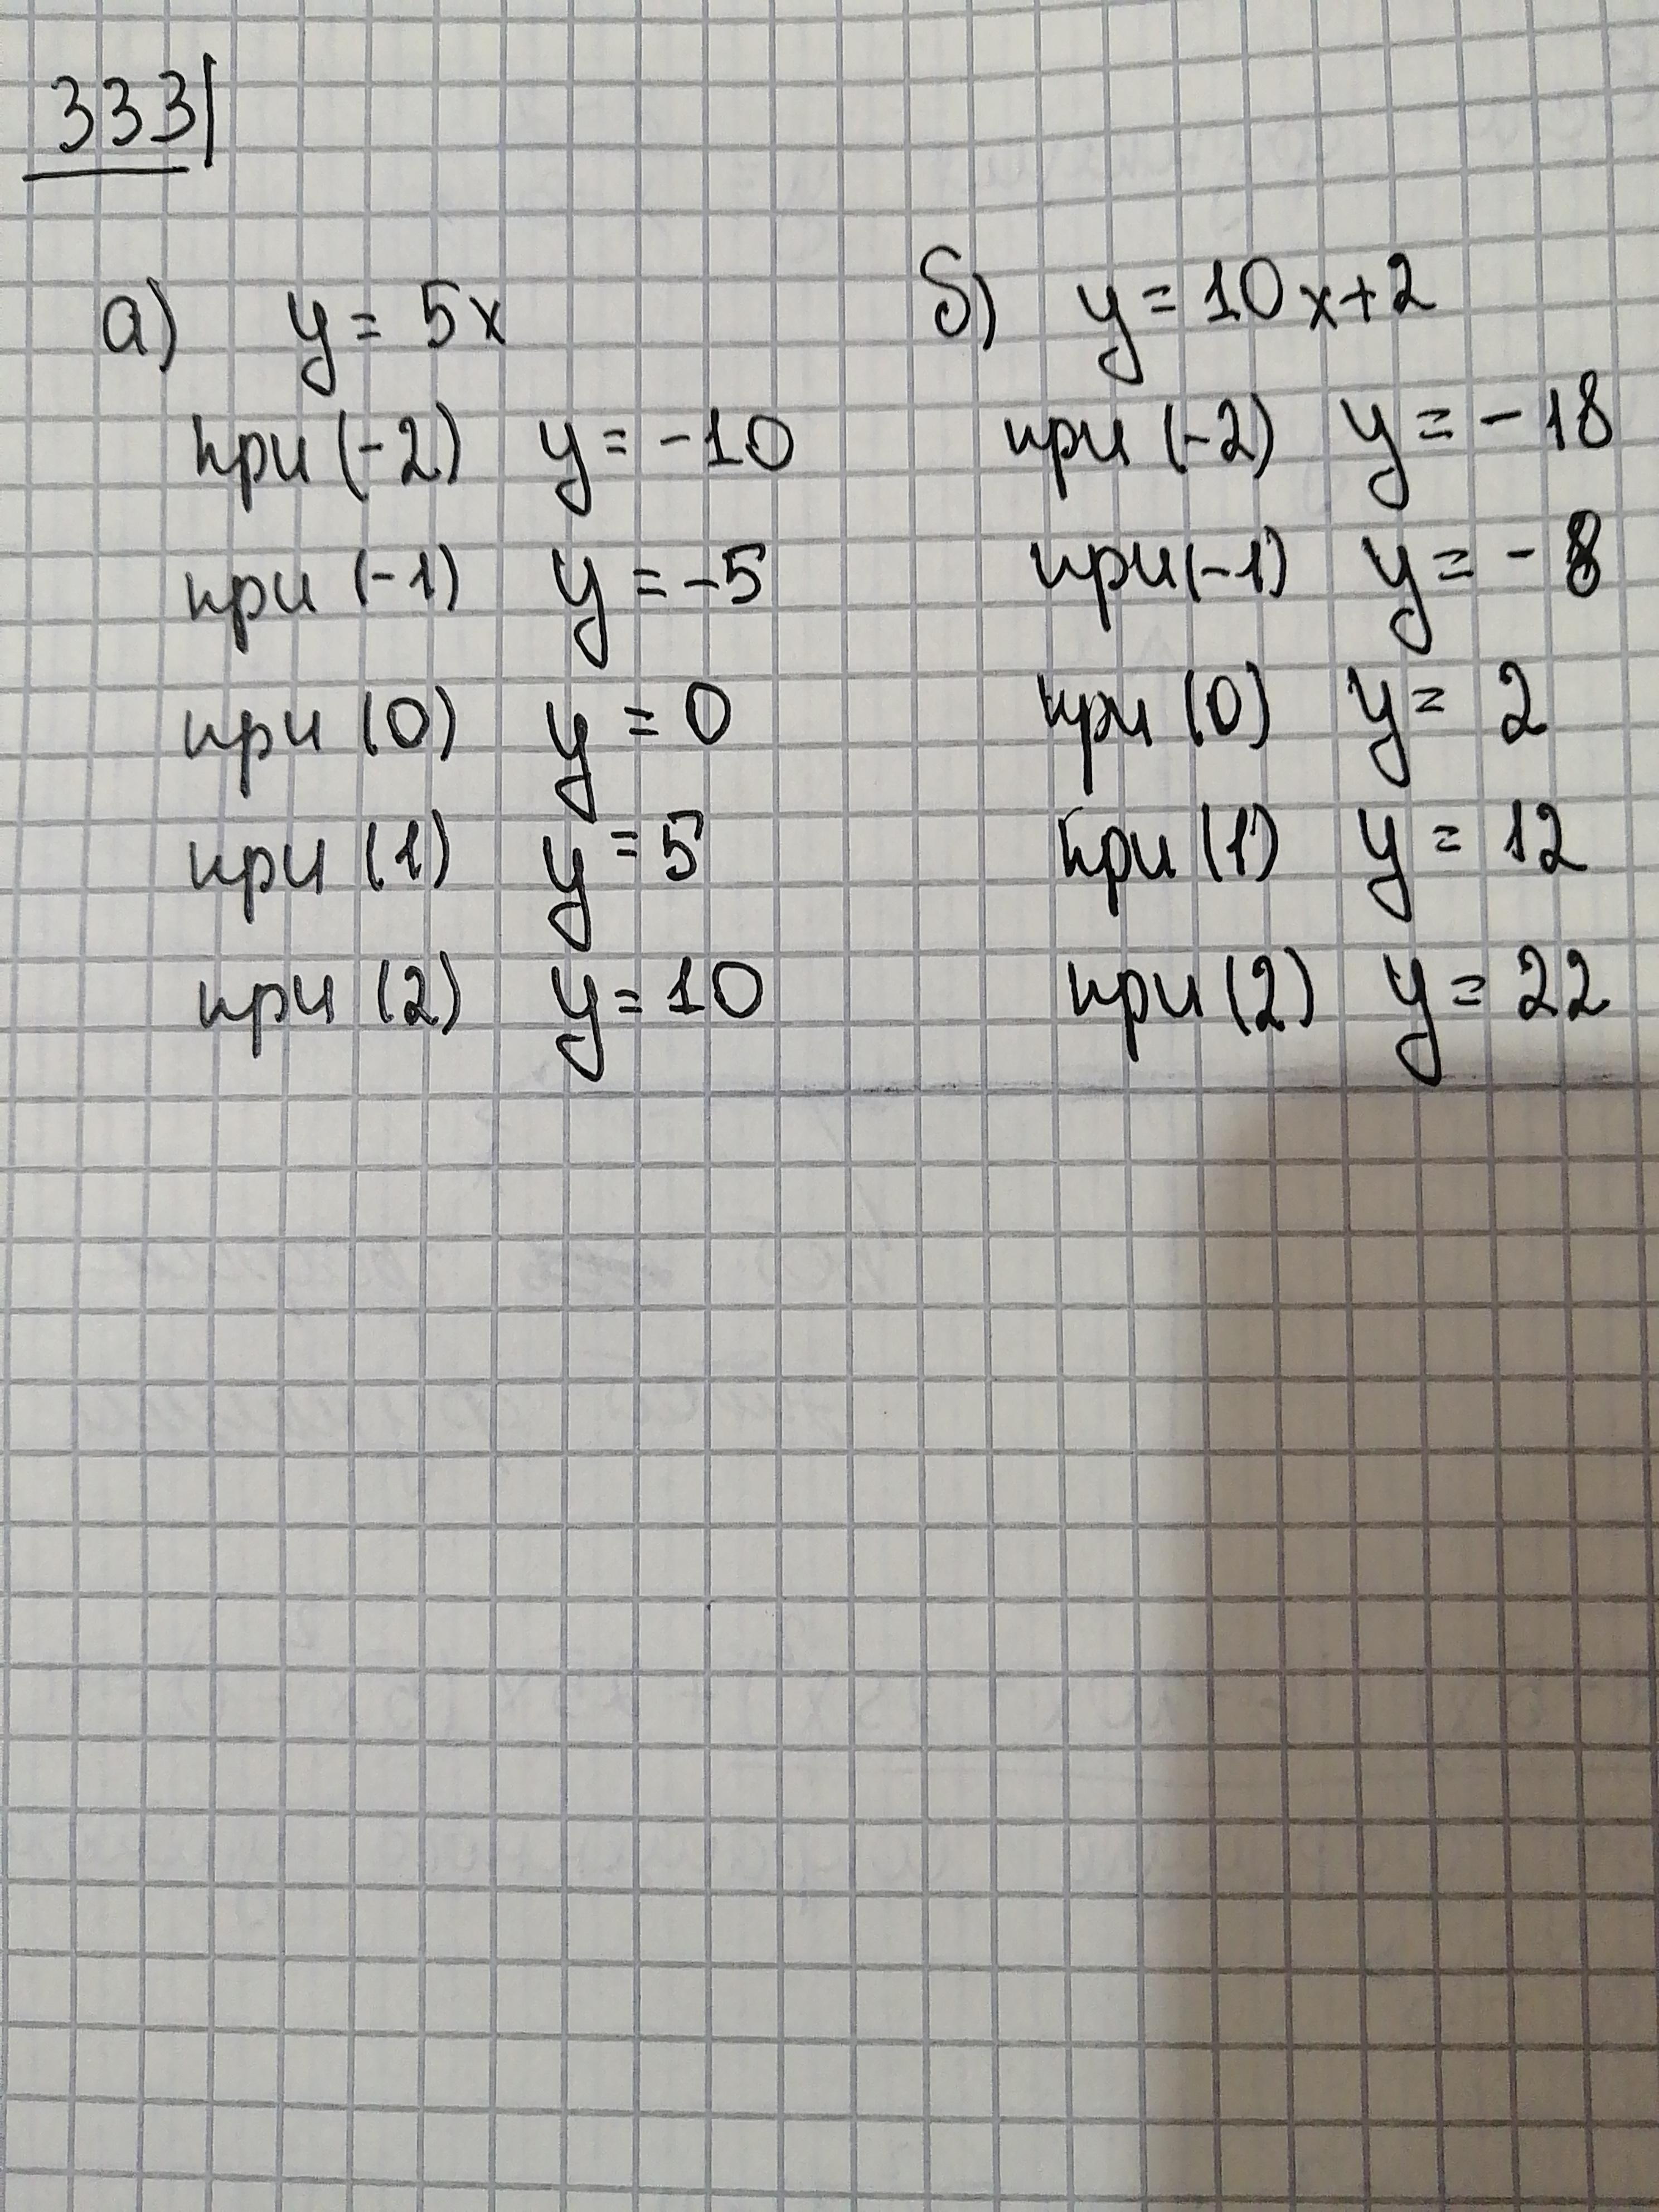 333
а) y = 5x
при (-2) y = -10
при (-1) y = -5
при (0) y = 0
при (1) y = 5
при (2) y = 10
б) y = 10x+2
при (-2) y = -18
при (-1) y = -8
при (0) y = 2
при (1) y = 12
при (2) y = 22